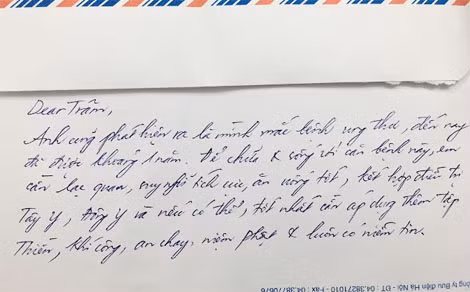 Dear Trâm,
Anh cũng phát hiện ra là mình mắc bệnh ung thư, đến nay
đã được khoảng 1 năm. Để chữa & sống với căn bệnh này, em
cần lạc quan, suy nghĩ tích cực, ăn uống tốt, kết hợp điều trị
Tây y, Đông y và nếu có thể, tốt nhất cần áp dụng thêm tập
Thiền, khí công, ăn chay, niệm phật & luôn có niềm tin.
ty Bưu điện Hà Nội - ĐT : 04.38271010 - Fax : 04.38770676